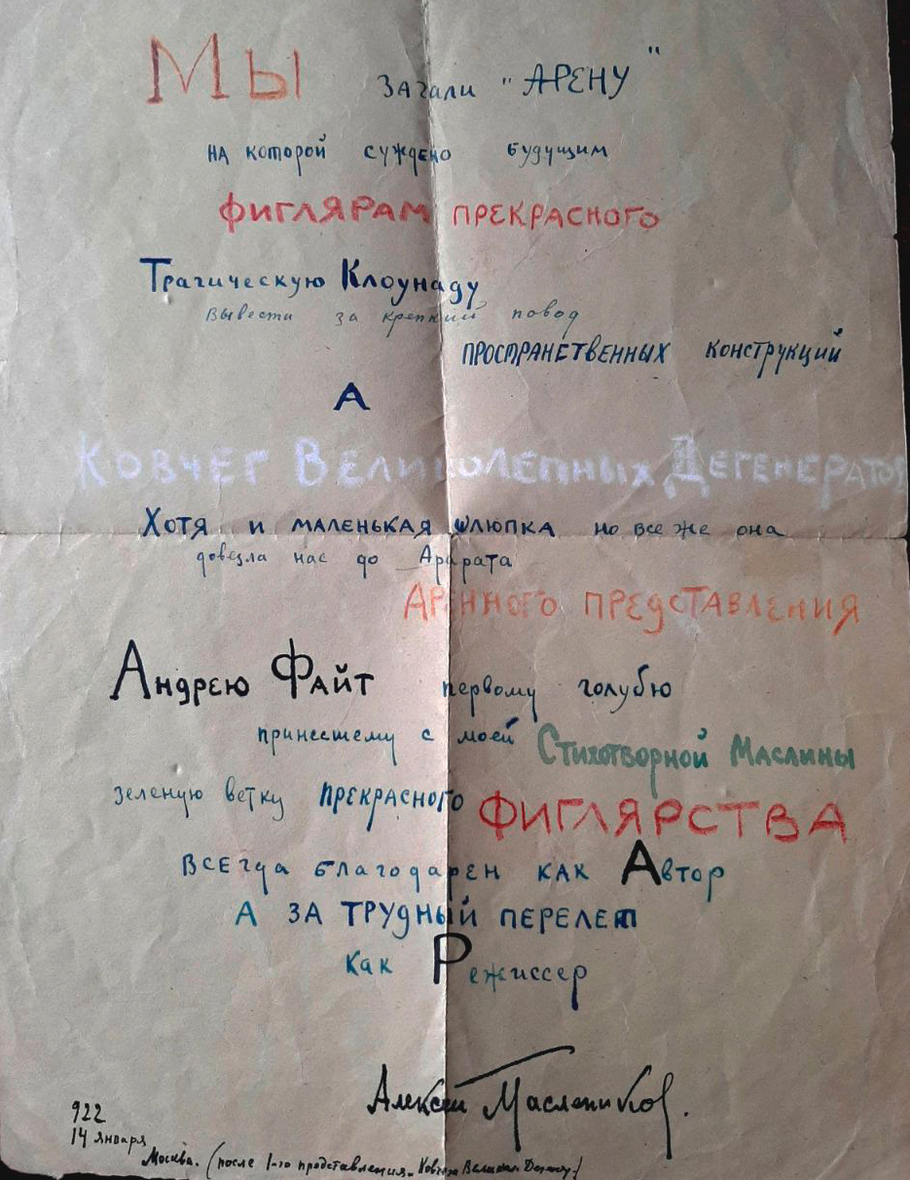 Мы зачали "АРЕНУ"
на которой суждено будущим
ФИГЛЯРАМ ПРЕКРАСНОГО
Трагическую Клоунаду
вывести за крепкий повод
ПРОСТРАНСТВЕННЫХ КОНСТРУКЦИЙ
А
КОВЧЕГ ВЕЛИКОЛЕПНЫХ ДЕГЕНЕРАТОВ
ХОТЯ и МАЛЕНЬКАЯ ШЛЮПКА но все же она
довезла нас до Арарата
АРЕННОГО ПРЕДСТАВЛЕНИЯ
АНДРЕЮ ФАЙТ первому голубю
принесшему с моей Стихотворной Маслины
зеленую ветку ПРЕКРАСНОГО ФИГЛЯРСТВА
ВСЕГДА БЛАГОДАРЕН КАК АВТОР
А ЗА ТРУДНЫЙ ПЕРЕЛЕТ
КАК РЕЖИССЕР
Алексей Маслеников.
922
14 января
Москва. (после 1-го представления Ковчега Великол. Деген.)